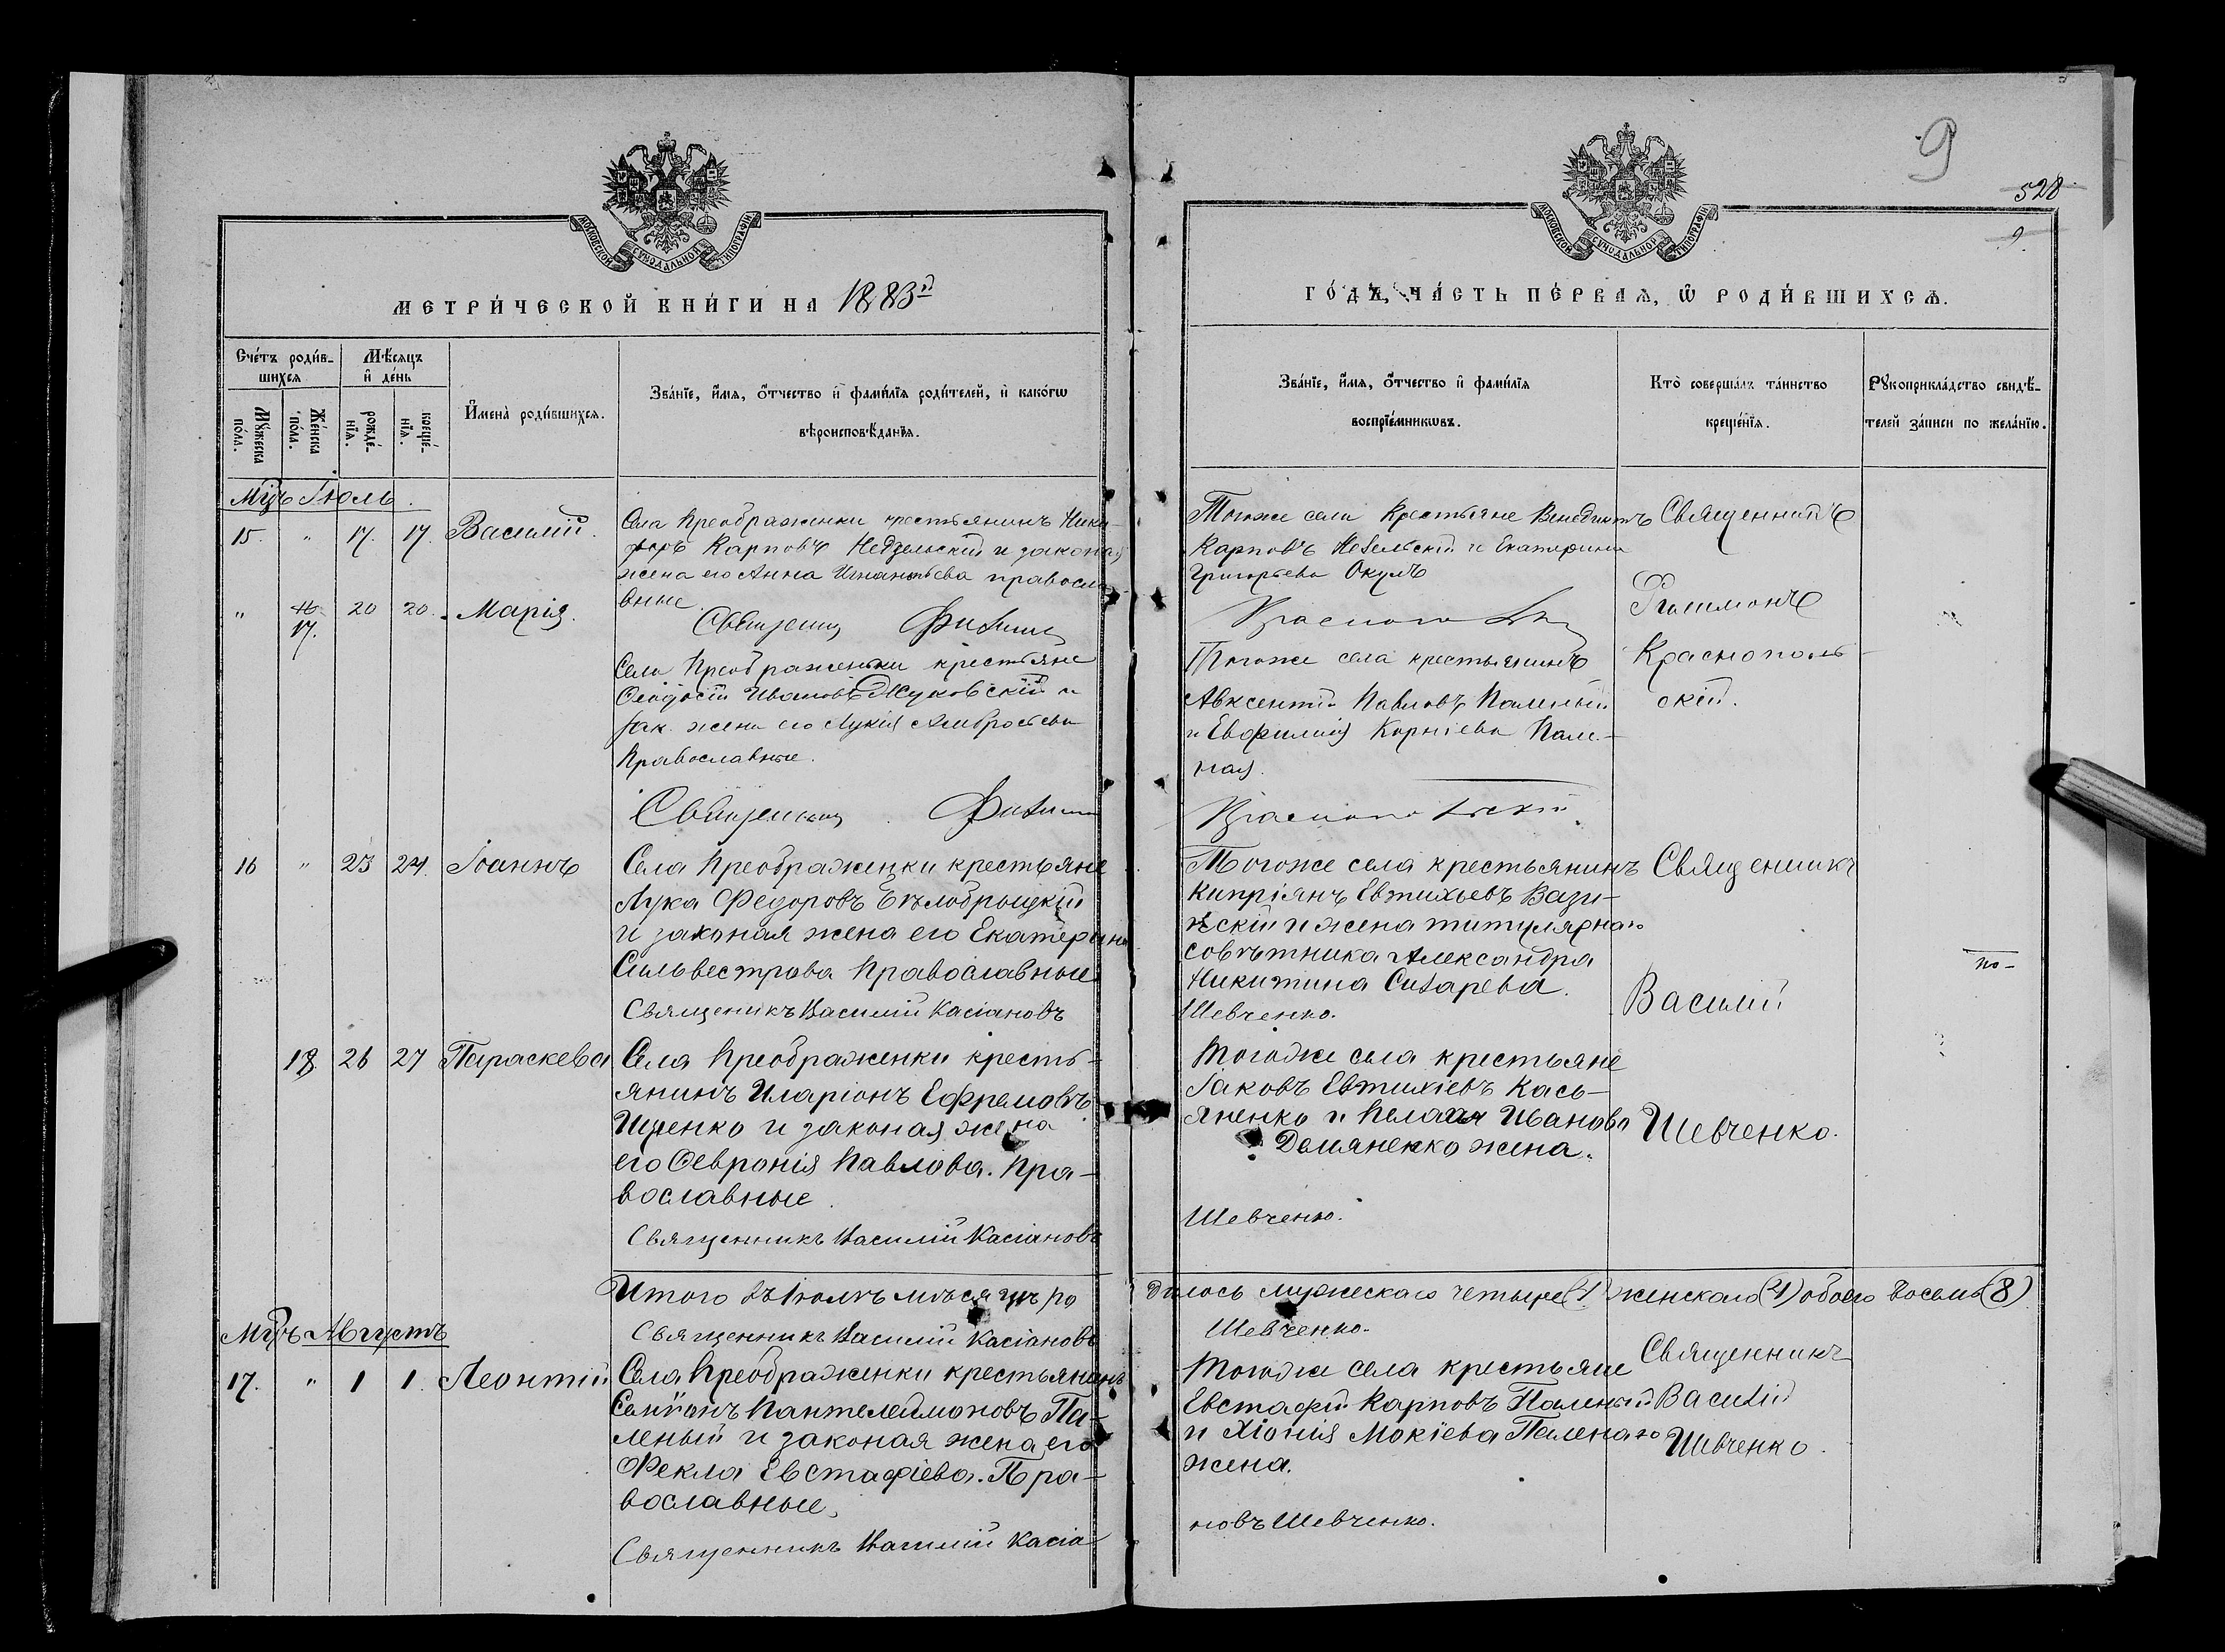 МОСКОВСКОЙ СУНОДАЛЬНОЙ ТИПОГРАФІИ
МЕТРИ́ЧЕСКОЙ КНИ́ГИ НА 1883й
Сче́тъ роди́в-
шихся
Мѣ́сяцъ
и҆ де́нь
Му́жеска
по́ла.
Же́нска
по́ла.
рожде́-
нїя.
креще́-
нїя.
И҆мена̀ роди́вшихся.
Зва́нїе, и҆́мя, ѻ҆́тчество и҆ фами́лїя роди́телей, и҆ како́гѡ
вѣроисповѣ́данїя.
Мцъ Іюль.
15. " 17. 17. Василій.
Села Преображенки крестьянинъ Ники-
форъ Карповъ Недзельскій и законая
жена его Анна Игнатьева правосла-
вные
" 16 17. 20 20. Марія.
Села Преображенки крестьяне
Ѳеодосій Ивановъ Жуковскій и
зак. жена его Лукія Амвросьева
Православные.
16 " 23 24. Іоаннъ
Села Преображенки крестьяне
Лука Федоровъ Бѣлобрыцкій
и законая жена его Екатерина
Сильвестрова Православные
Священикъ Василій Касіановъ
18. 26 27 Параскева
Села Преображенки кресть-
янинъ Иларіонъ Ефремовъ
Ищенко и законая жена
его Ѳевронія Павлова. Пра-
вославные.
Священникъ Василій Касіановъ
Итого въ Іюлѣ мѣсяцѣ ро
Священникъ Василій Касіановъ
Мцъ Августъ
17. " 1 1. Леонтій
Села Преображенки крестьянинъ
Семіонъ Пантелеймоновъ Па-
леный и законая жена его
Фекла Евстафіева. Пра-
вославные.
Священникъ Василій Касіа
9
528
9.
МОСКОВСКОЙ СУНОДАЛЬНОЙ ТИПОГРАФІИ
ГО́ДЪ, ЧА́СТЬ ПЕ́РВАЯ, Ѡ҆ РОДИ́ВШИХСЯ.
Зва́нїе, и҆́мя, ѻ҆́тчество и҆ фами́лїя
воспрїе́мникѡвъ.
Кто̀ соверша́лъ та́инство
креще́нїя.
Рꙋкоприкла́дство свидѣ́-
телей за́писи по жела́нїю.
Тогоже села Крестьяне Венедиктъ
Карповъ Недельскій и Екатерина
Григорьева Окулъ
Священникъ
Филимонъ
Краснополь-
скій.
Тогоже села крестьянинъ
Авксентій Павловъ Паленый
и Евфимія Корніева Пале-
ная.
Краснопольскій
Тогоже села крестьянинъ
Кипріянъ Евтихьевъ Вази-
нскій и жена титулярнаго
совѣтника Александра
Никитина Сидарева.
Шевченко.
Священикъ
Василій
Шевченко.
по-
Тогоже села крестьяне
Іаковъ Евтихіевъ Кась-
яненко и Пелагія Иванова
Демяненко жена.
Шевченко.
дилось мужескаго четыре(4) женскаго (4) обоего восемь (8)
Шевченко.
Тогоже села крестьяне
Евстафій Карповъ Паленый
и Хіонія Мокіева Паленаго
жена.
новъ Шевченко.
Священникъ
Василій
Шевченко.